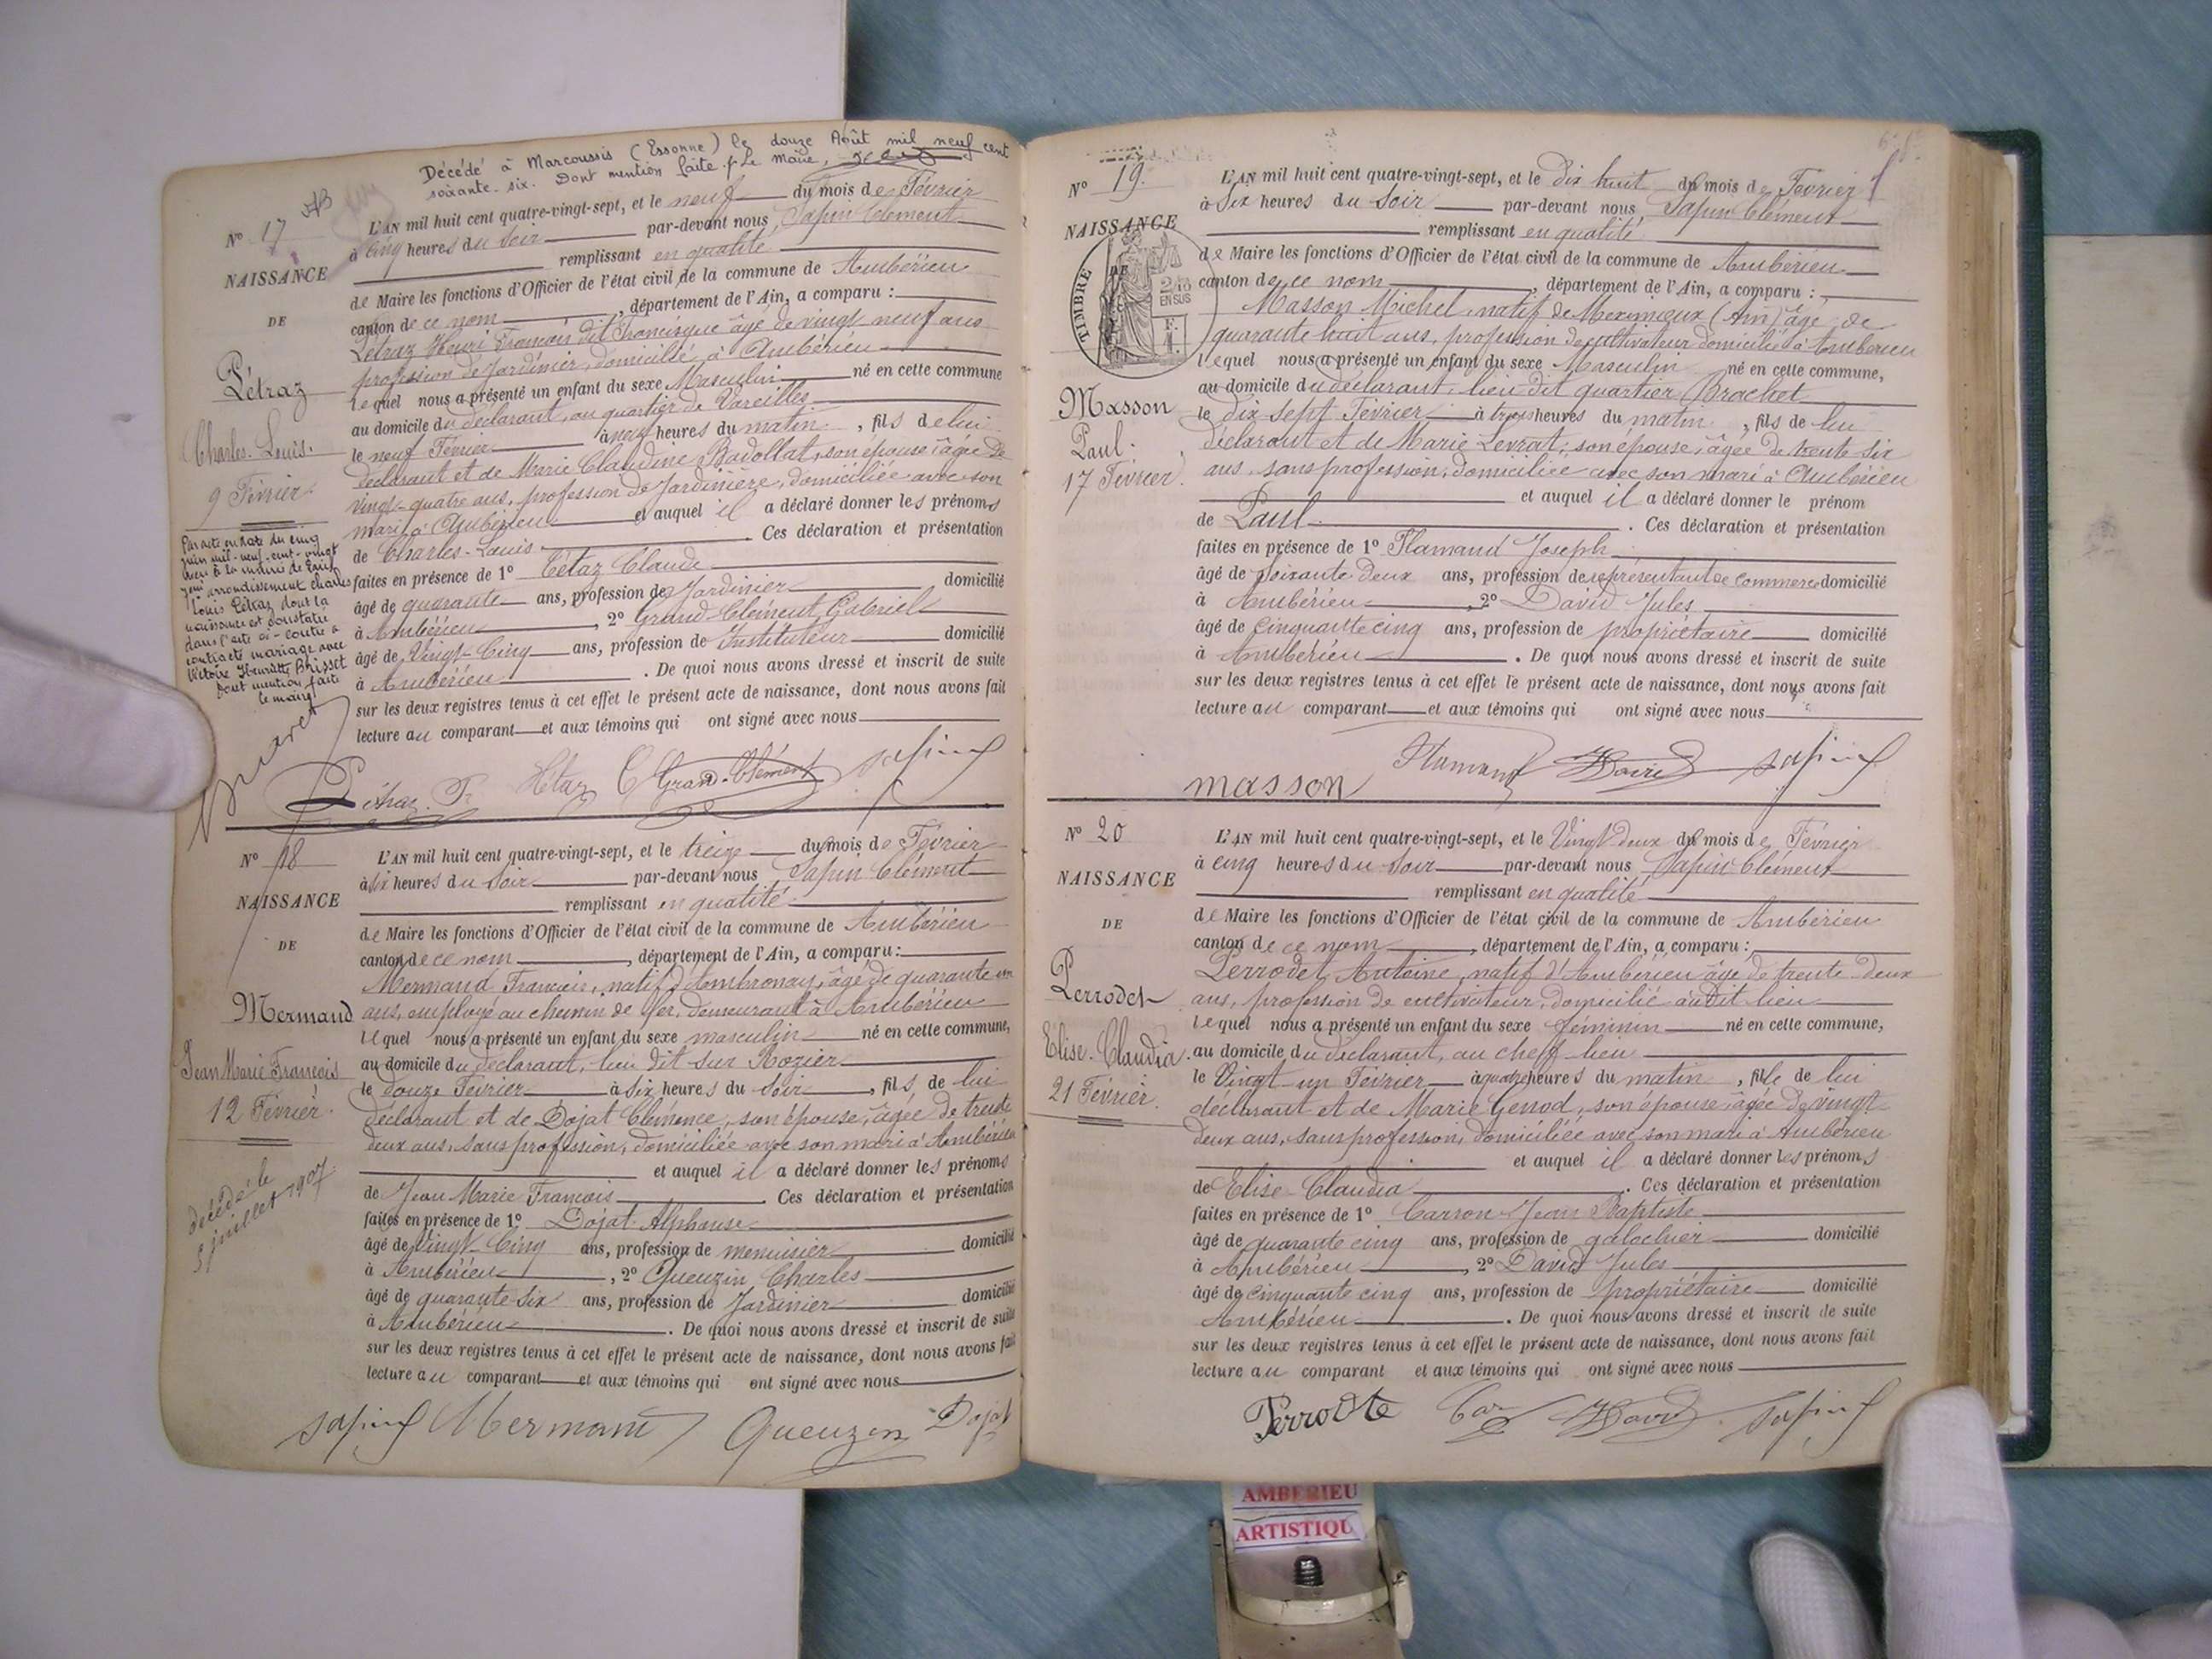 Décédé à Marcoussis (Essonne) le douze Août mil neuf cent
soixante-six. Dont mention faite. Le Maire,
N° 17
NAISSANCE
DE
Pétraz
Charles-Louis.
9 Février
Par acte en date du cinq
juin mil-neuf-cent-vingt
à la mairie de
arrondissement Charles
Louis Pétraz dont la
naissance est constatée
dans l'acte ci-contre a
contracté mariage avec
Victoire Henriette Brisset
Dont mention faite
le maire
L'AN mil huit cent quatre-vingt-sept, et le neuf du mois de Février
à cinq heures du soir par-devant nous, Sapin Clément
remplissant en qualité
de Maire les fonctions d'Officier de l'état civil de la commune de Ambérieu
canton de ce nom, département de l'Ain, a comparu :
Pétraz Henri François dit Francisque âgé de vingt-neuf ans
profession de Jardinier, domicilié à Ambérieu
lequel nous a présenté un enfant du sexe Masculin né en cette commune
au domicile du déclarant, au quartier de Vareilles
le neuf Février à neuf heures du matin, fils de lui
déclarant et de Marie Claudine Badollat, son épouse, âgée de
vingt-quatre ans, profession de Jardinière, domiciliée avec son
mari à Ambérieu et auquel il a déclaré donner les prénoms
de Charles-Louis. Ces déclaration et présentation
faites en présence de 1° Tétaz Claude
âgé de quarante ans, profession de Jardinier domicilié
à Ambérieu, 2° Grand-Clément Gabriel
âgé de Vingt-Cinq ans, profession de Instituteur domicilié
à Ambérieu. De quoi nous avons dressé et inscrit de suite
sur les deux registres tenus à cet effet le présent acte de naissance, dont nous avons fait
lecture au comparant et aux témoins qui ont signé avec nous
Pétraz F. Tétaz C Grand-Clément Sapin
N° 18
NAISSANCE
DE
Mermand
Jean Marie François
12 Février.
décédé le
5 juillet 1907
L'AN mil huit cent quatre-vingt-sept, et le treize du mois de Février
à six heures du soir par-devant nous Sapin Clément
remplissant en qualité
de Maire les fonctions d'Officier de l'état civil de la commune de Ambérieu
canton de ce nom, département de l'Ain, a comparu :
Mermand François, natif d'Ambronay, âgé de quarante un
ans, employé au chemin de fer, demeurant à Ambérieu
lequel nous a présenté un enfant du sexe masculin né en cette commune,
au domicile du déclarant, lieu dit sur Rozier
le douze Février à six heures du soir, fils de lui
déclarant et de Dojat Clémence, son épouse, âgée de trente
deux ans, sans profession, domiciliée avec son mari à Ambérieu
et auquel il a déclaré donner les prénoms
de Jean Marie François. Ces déclaration et présentation
faites en présence de 1° Dojat Alphonse
âgé de Vingt-Cinq ans, profession de menuisier domicilié
à Ambérieu, 2° Queuzin Charles
âgé de quarante-six ans, profession de Jardinier domicilié
à Ambérieu. De quoi nous avons dressé et inscrit de suite
sur les deux registres tenus à cet effet le présent acte de naissance, dont nous avons fait
lecture au comparant et aux témoins qui ont signé avec nous
Sapin Mermand Queuzin Dojat
N° 19.
NAISSANCE
DE
TIMBRE
2/10
EN SUS
Masson
Paul.
17 Février.
L'AN mil huit cent quatre-vingt-sept, et le dix huit du mois de Février
à six heures du soir par-devant nous Sapin Clément
remplissant en qualité
de Maire les fonctions d'Officier de l'état civil de la commune de Ambérieu
canton de ce nom, département de l'Ain, a comparu :
Masson Michel, natif de Meximieux (Ain) âgé de
quarante huit ans, profession de cultivateur domicilié à Ambérieu
lequel nous a présenté un enfant du sexe Masculin né en cette commune,
au domicile du déclarant, lieu dit quartier Brachet
le dix sept Février à trois heures du matin, fils de lui
déclarant et de Marie Levrat, son épouse, âgée de trente six
ans, sans profession, domiciliée avec son mari à Ambérieu
et auquel il a déclaré donner le prénom
de Paul. Ces déclaration et présentation
faites en présence de 1° Flamand Joseph
âgé de soixante deux ans, profession de représentant de commerce domicilié
à Ambérieu, 2° David Jules
âgé de Cinquante cinq ans, profession de propriétaire domicilié
à Ambérieu. De quoi nous avons dressé et inscrit de suite
sur les deux registres tenus à cet effet le présent acte de naissance, dont nous avons fait
lecture au comparant et aux témoins qui ont signé avec nous
Flamand David Sapin
masson
N° 20
NAISSANCE
DE
Perrodet
Elise-Claudia.
21 Février.
L'AN mil huit cent quatre-vingt-sept, et le Vingt deux du mois de Février
à cinq heures du soir par-devant nous Sapin Clément
remplissant en qualité
de Maire les fonctions d'Officier de l'état civil de la commune de Ambérieu
canton de ce nom, département de l'Ain, a comparu :
Perrodet Antoine, natif d'Ambérieu âgé de trente-deux
ans, profession de cultivateur, domicilié audit lieu
lequel nous a présenté un enfant du sexe féminin né en cette commune,
au domicile du déclarant, au chef-lieu
le Vingt-un Février à quatre heures du matin, fille de lui
déclarant et de Marie Genod, son épouse, âgée de vingt
deux ans, sans profession, domiciliée avec son mari à Ambérieu
et auquel il a déclaré donner les prénoms
de Elise-Claudia. Ces déclaration et présentation
faites en présence de 1° Carron Jean Baptiste
âgé de quarante cinq ans, profession de galochier domicilié
à Ambérieu, 2° David Jules
âgé de Cinquante cinq ans, profession de propriétaire domicilié
Ambérieu. De quoi nous avons dressé et inscrit de suite
sur les deux registres tenus à cet effet le présent acte de naissance, dont nous avons fait
lecture au comparant et aux témoins qui ont signé avec nous
Perrodte Car David Sapin
AMBERIEU
ARTISTIQU